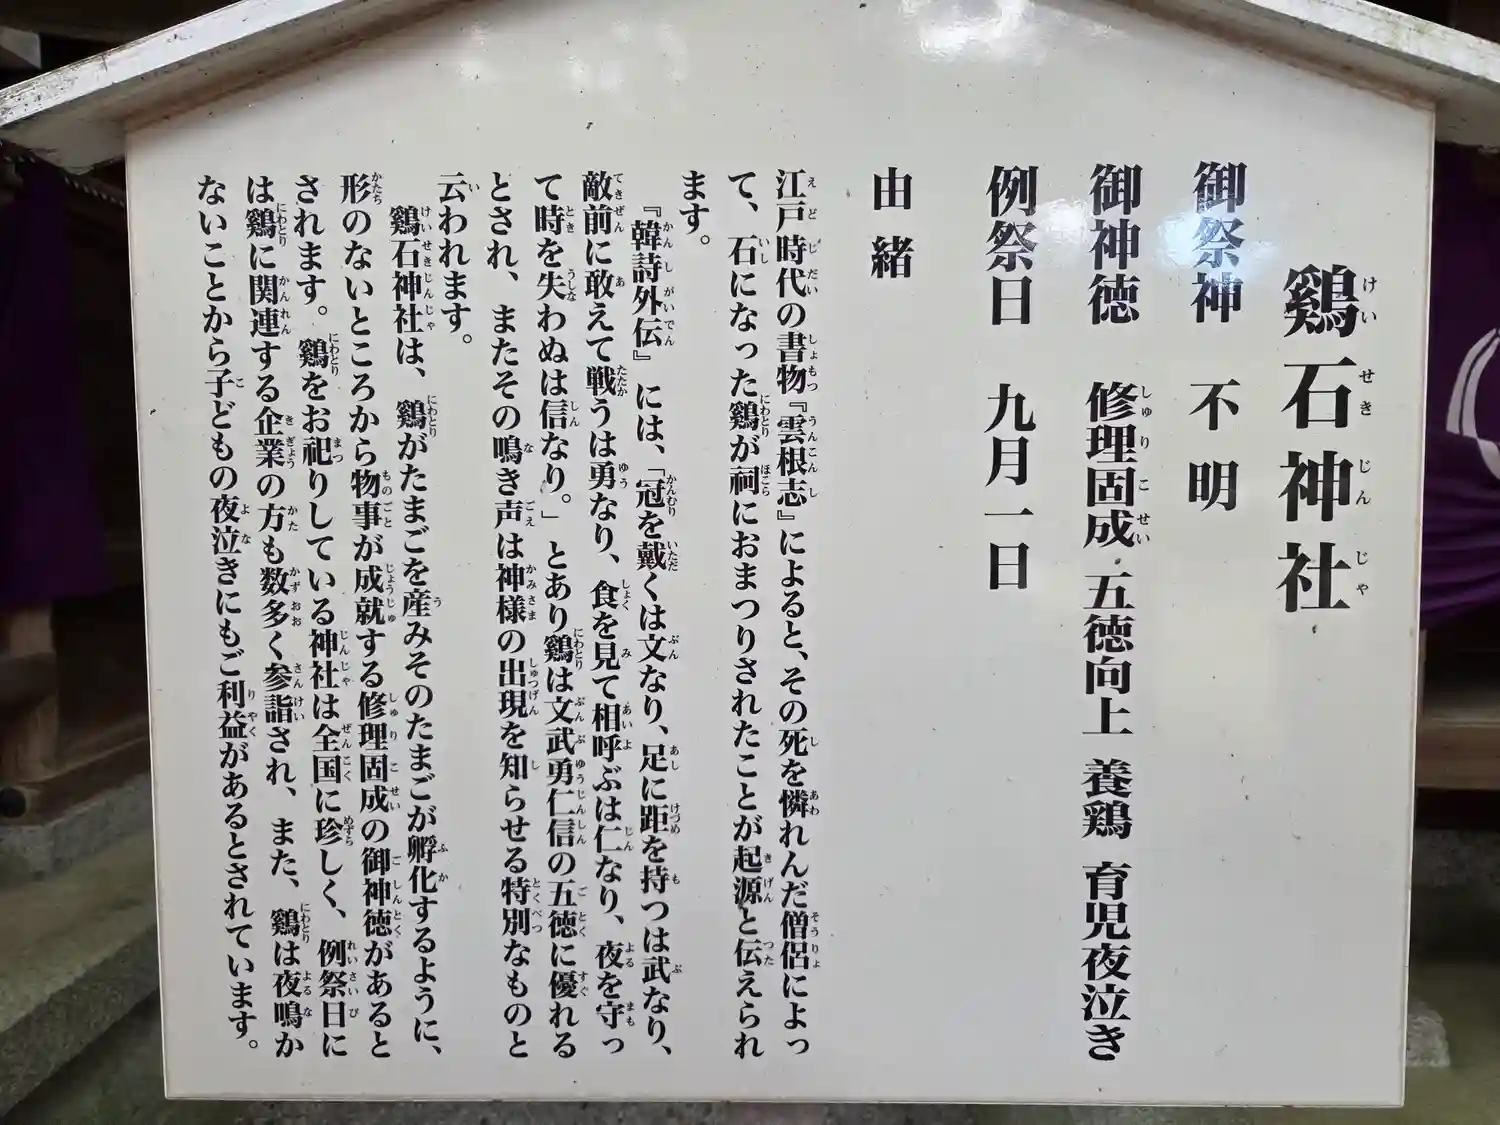 鷄石神社
御祭神　不明
御神徳　修理固成　五徳向上　養鶏　育児夜泣き
例祭日　九月一日
由緒
江戸時代の書物『雲根志』によると、その死を憐れんだ僧侶によっ
て、石になった鷄が祠におまつりされたことが起源と伝えられ
ます。
『韓詩外伝』には、「冠を戴くは文なり、足に距を持つは武なり、
敵前に敢えて戦うは勇なり、食を見て相呼ぶは仁なり、夜を守っ
て時を失わぬは信なり。」とあり鷄は文武勇仁信の五徳に優れる
とされ、またその鳴き声は神様の出現を知らせる特別なものと
云われます。
鷄石神社は、鷄がたまごを産みそのたまごが孵化するように、
形のないところから物事が成就する修理固成の御神徳があると
されます。鷄をお祀りしている神社は全国に珍しく、例祭日に
は鷄に関連する企業の方も数多く参詣され、また、鷄は夜鳴か
ないことから子どもの夜泣きにもご利益があるとされています。